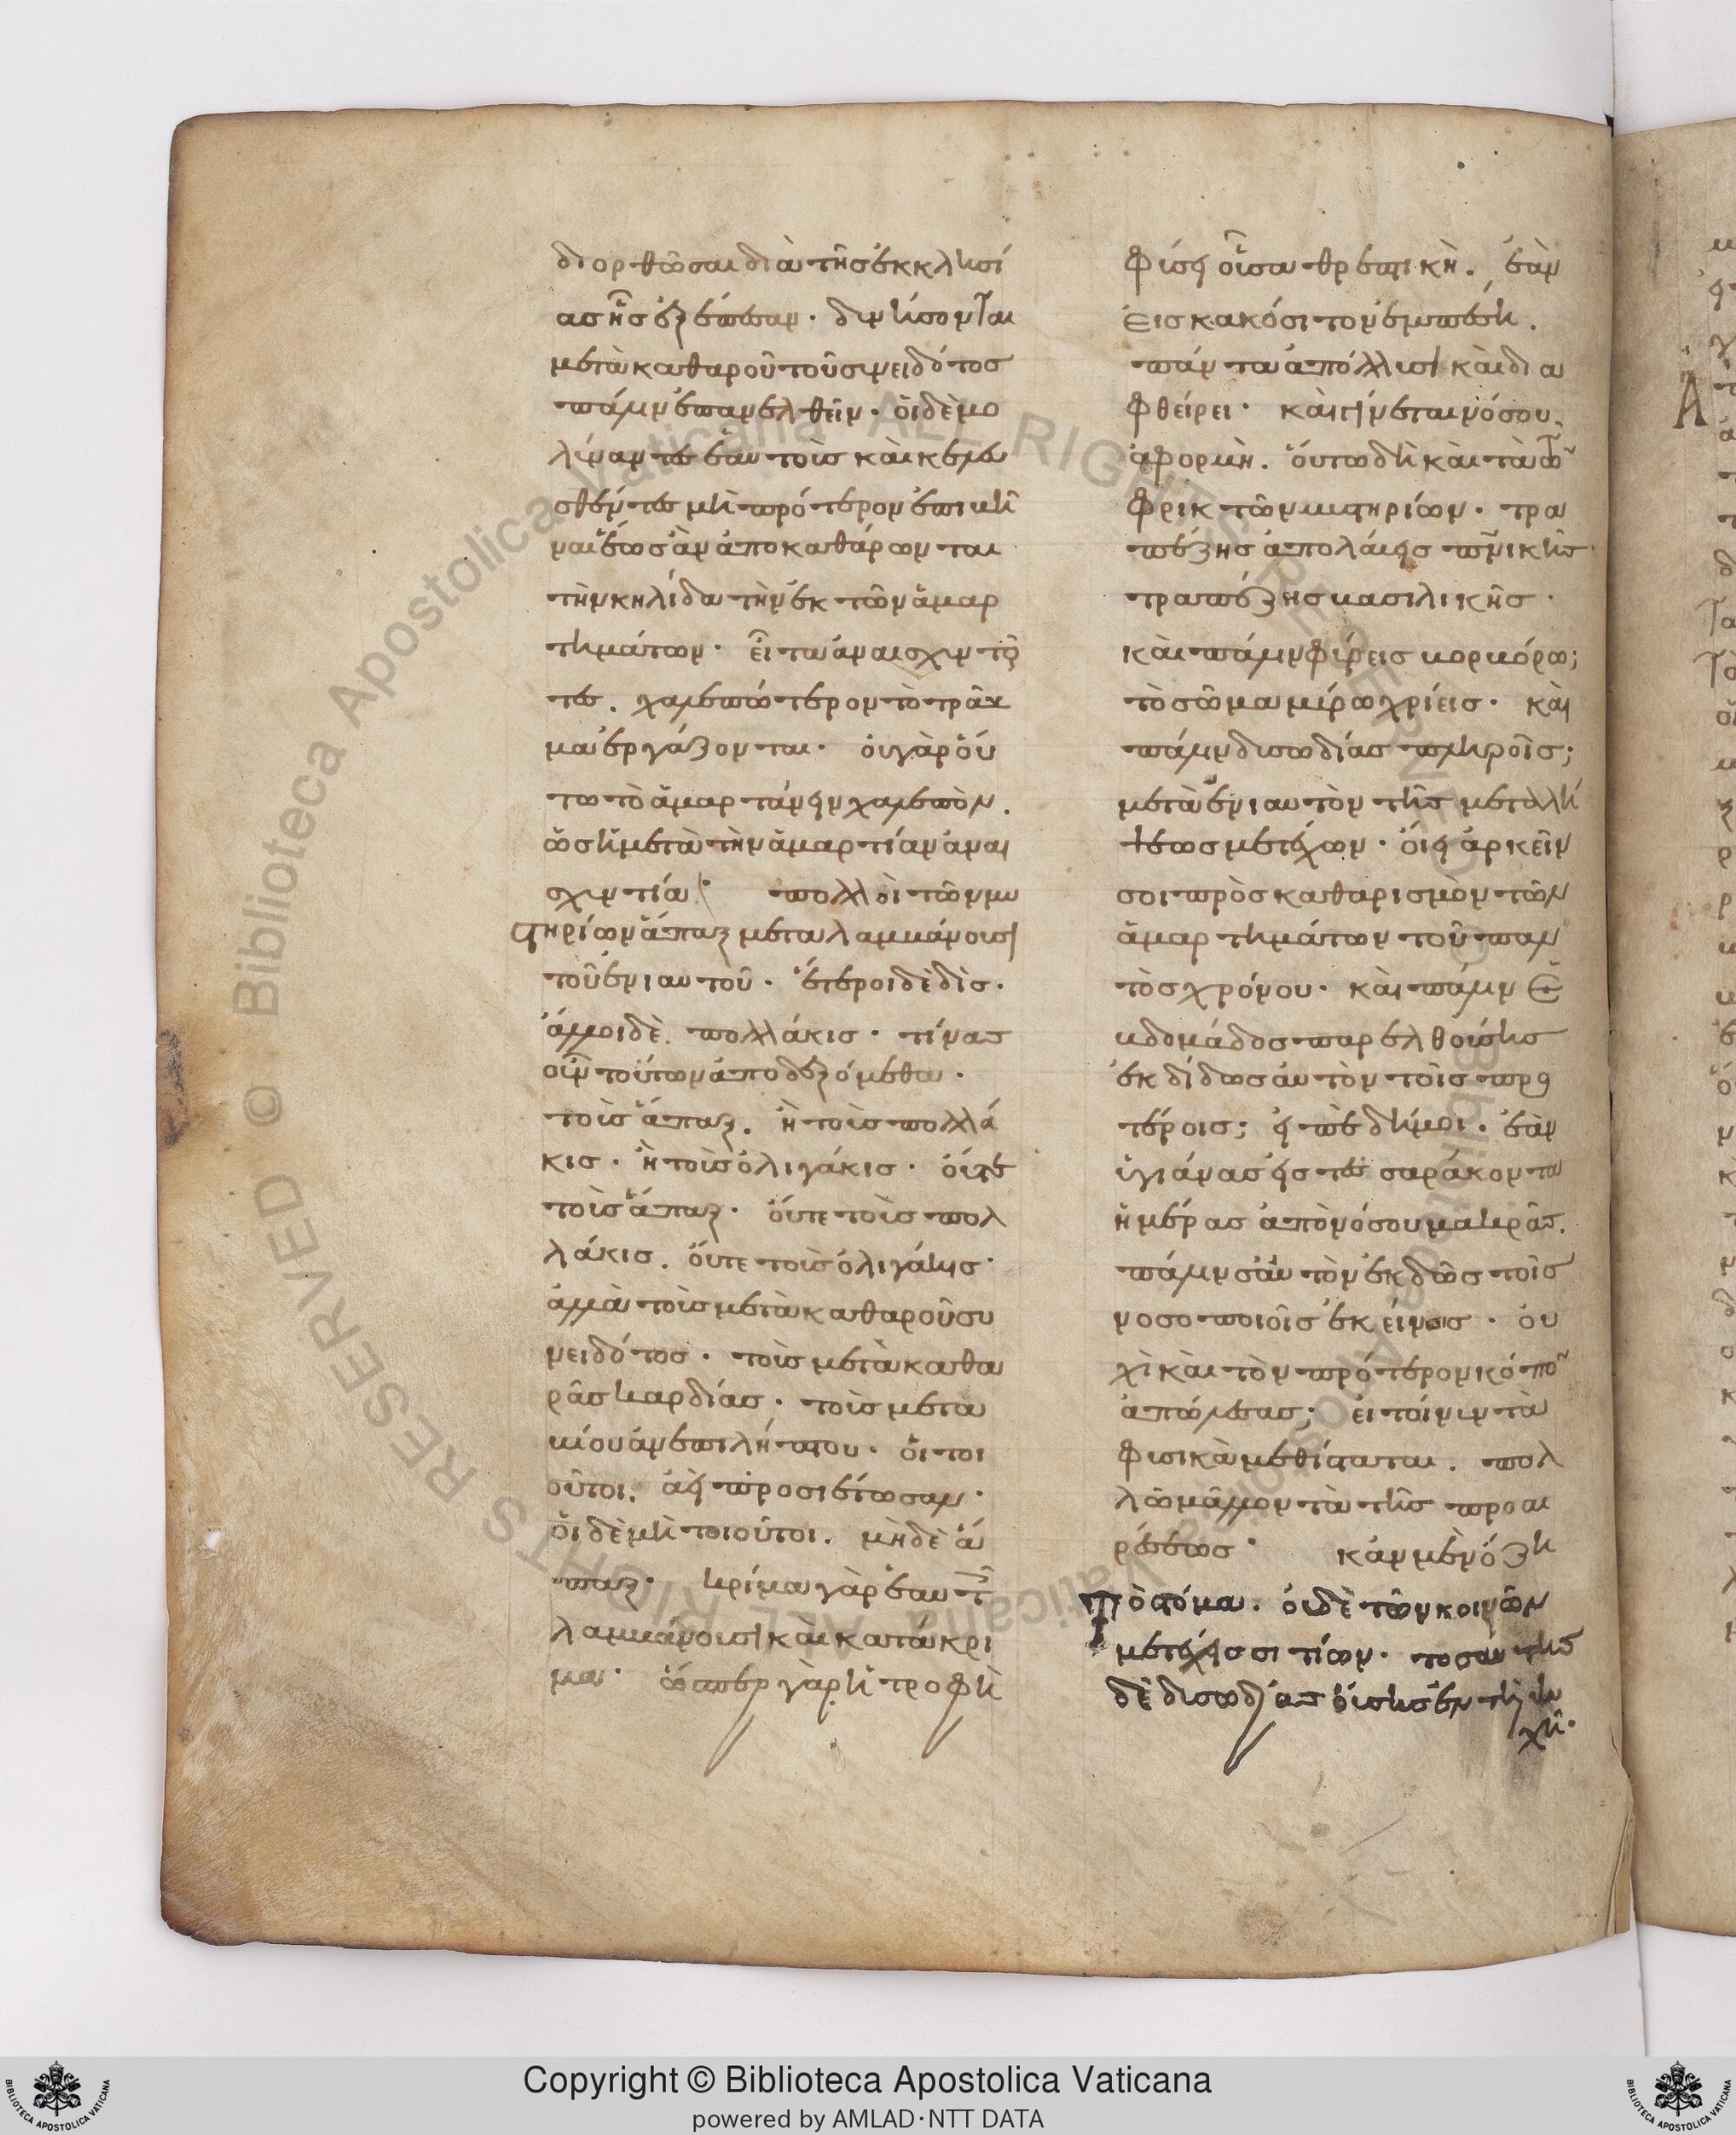 διορθῶσαι διὰ τῆς ἐκκλησί
ας ἧς ἐξέπεσαν· δυνήσονται
μετὰ καθαροῦ τοῦ συνειδότος
πάλιν ἐπανελθεῖν· οἱ δὲ μο
λύναντες ἑαυτοὺς καὶ κελευ
σθέντες μὴ πρότερον ἐπιβῆ
ναι ἕως ἂν ἀποκαθάρωνται
τὴν κηλίδα τὴν ἐκ τῶν ἁμαρ
τημάτων· εἶτα ἀναισχυντοῦ
τες. χαλεπώτερον τὸ τραῦ
μα ἐργάζονται· οὐ γὰρ οὕ
τω τὸ ἁμαρτάνειν χαλεπὸν.
ὡς ἡ μετὰ τὴν ἁμαρτίαν ἀναι
σχυντία· πολλοὶ τῶν μυ
στηρίων ἅπαξ μεταλαμβάνουσι
τοῦ ἐνιαυτοῦ· ἕτεροι δὲ δὶς·
ἄλλοι δὲ πολλάκις· τίνας
οὖν τούτων ἀποδεξόμεθα·
τοὺς ἅπαξ. ἢ τοὺς πολλά
κις· ἢ τοὺς ὀλιγάκις· οὔτε
τοὺς ἅπαξ· οὔτε τοὺς πολ
λάκις. οὔτε τοὺς ὀλιγάκις·
ἀλλὰ τοὺς μετὰ καθαροῦ συ
νειδότος· τοὺς μετὰ καθα
ρᾶς καρδίας· τοὺς μετὰ
βίου ἀνεπιλήπτου· οἱ τοι
οῦτοι. ἀεὶ προσιέτωσαν·
οἱ δὲ μὴ τοιοῦτοι. μηδὲ ἅ
παξ· κρίμα γὰρ ἑαυτοῖς
λαμβάνουσι καὶ κατάκρι
μα· ὥσπερ γὰρ ἡ τροφὴ
φύσει οὖσα θρεπτικὴ. ἐὰν
εἰς κακόσιτον ἐμπέσῃ.
πάντα ἀπόλλυσι καὶ δια
φθείρει· καὶ γίνεται νόσου
ἀφορμὴ. οὕτω δὴ καὶ τὰ τῶν
φρικτῶν μυστηρίων· τρα
πέζης ἀπολάυεις πνικῆς
τραπέζης βασιλικῆς·
καὶ πάλιν φύρεις βορβόρω;
τὸ σῶμα μύρω χρίεις· καὶ
πάλιν δυσωδίας πληροῖς;
μετὰ ἐνιαυτὸν τῆς μεταλή
ψεως μετέχων· οἴει ἀρκεῖν
σοι πρὸς καθαρισμὸν τῶν
ἁμαρτημάτων τοῦ παν
τὸς χρόνου· καὶ πάλιν ἑ
βδομάδος παρελθούσης
ἐκδίδως αυτὸν τοῖς προ
τέροις; εἰπὲ δή μοι. ἐὰν
ὑγιάνας εἰς τεσσαράκοντα
ἡμέρας ἀπὸ νόσου μακρᾶς.
πάλιν σαυτὸν ἐκδῶς τοῖς
νοσοποιοῖς ἐκείνοις· οὐ
χὶ καὶ τὸν πρότερον κόπον
ἀπώλεσας; εἰ τοίνυν τὰ
φυσικὰ μεθίσταται. πολ
λῶ μᾶλλον τὰ τῆς προαι
ρέσεως· κἂν μὲν ὄζῃ
τὸ στόμα. οὐδὲ τῶν κοινῶν
μετέχεις σιτίων· τοσαύτης
δὲ δυσωδίας οὔσης ἐν τῇ ψυ
χῇ·
Copyright © Biblioteca Apostolica Vaticana
powered by AMLAD·NTT DATA